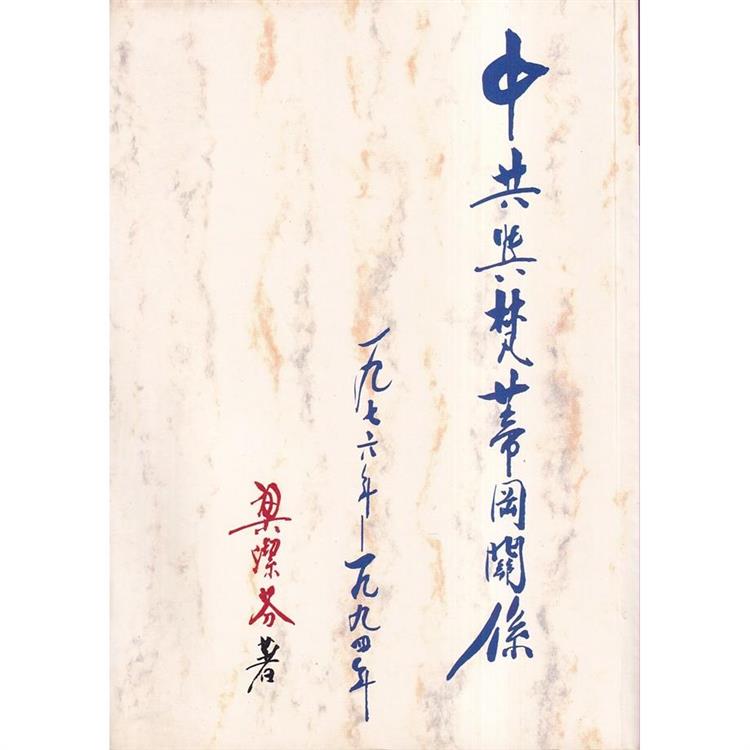 中共與梵蒂岡關係
一九七六年–一九九四年
梁潔芬著